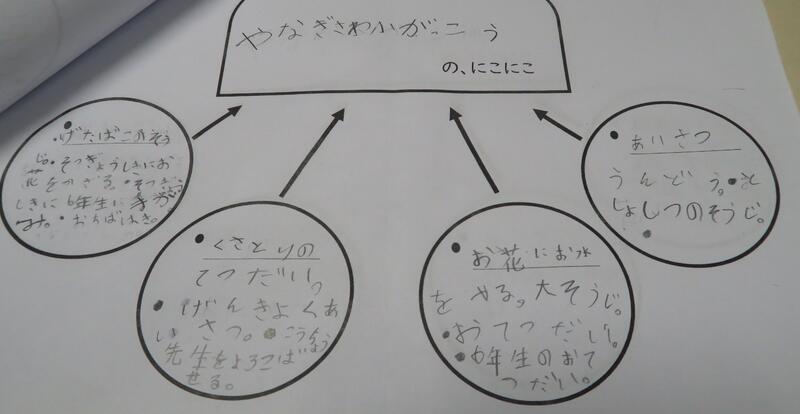 やなぎさわ小がっこう
の、にこにこ
・げたばこのそう
じ。・そつぎょうしきにお
花をかざる。・そつぎょう
しきに6年生に手が
み。・おちばはき。
・くさとりの
てつだい。
・げんきよくあ
いさつ。・こうちょう
先生をよろこば
せる。
・お花にお水
をやる。大そうじ。
・おてつだい。
・6年生のおて
つだい。
・あいさつ
うんどう。・と
しょしつのそうじ。